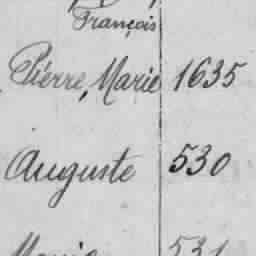 François
Pierre, Marie 1635
Auguste 530
Marie 531